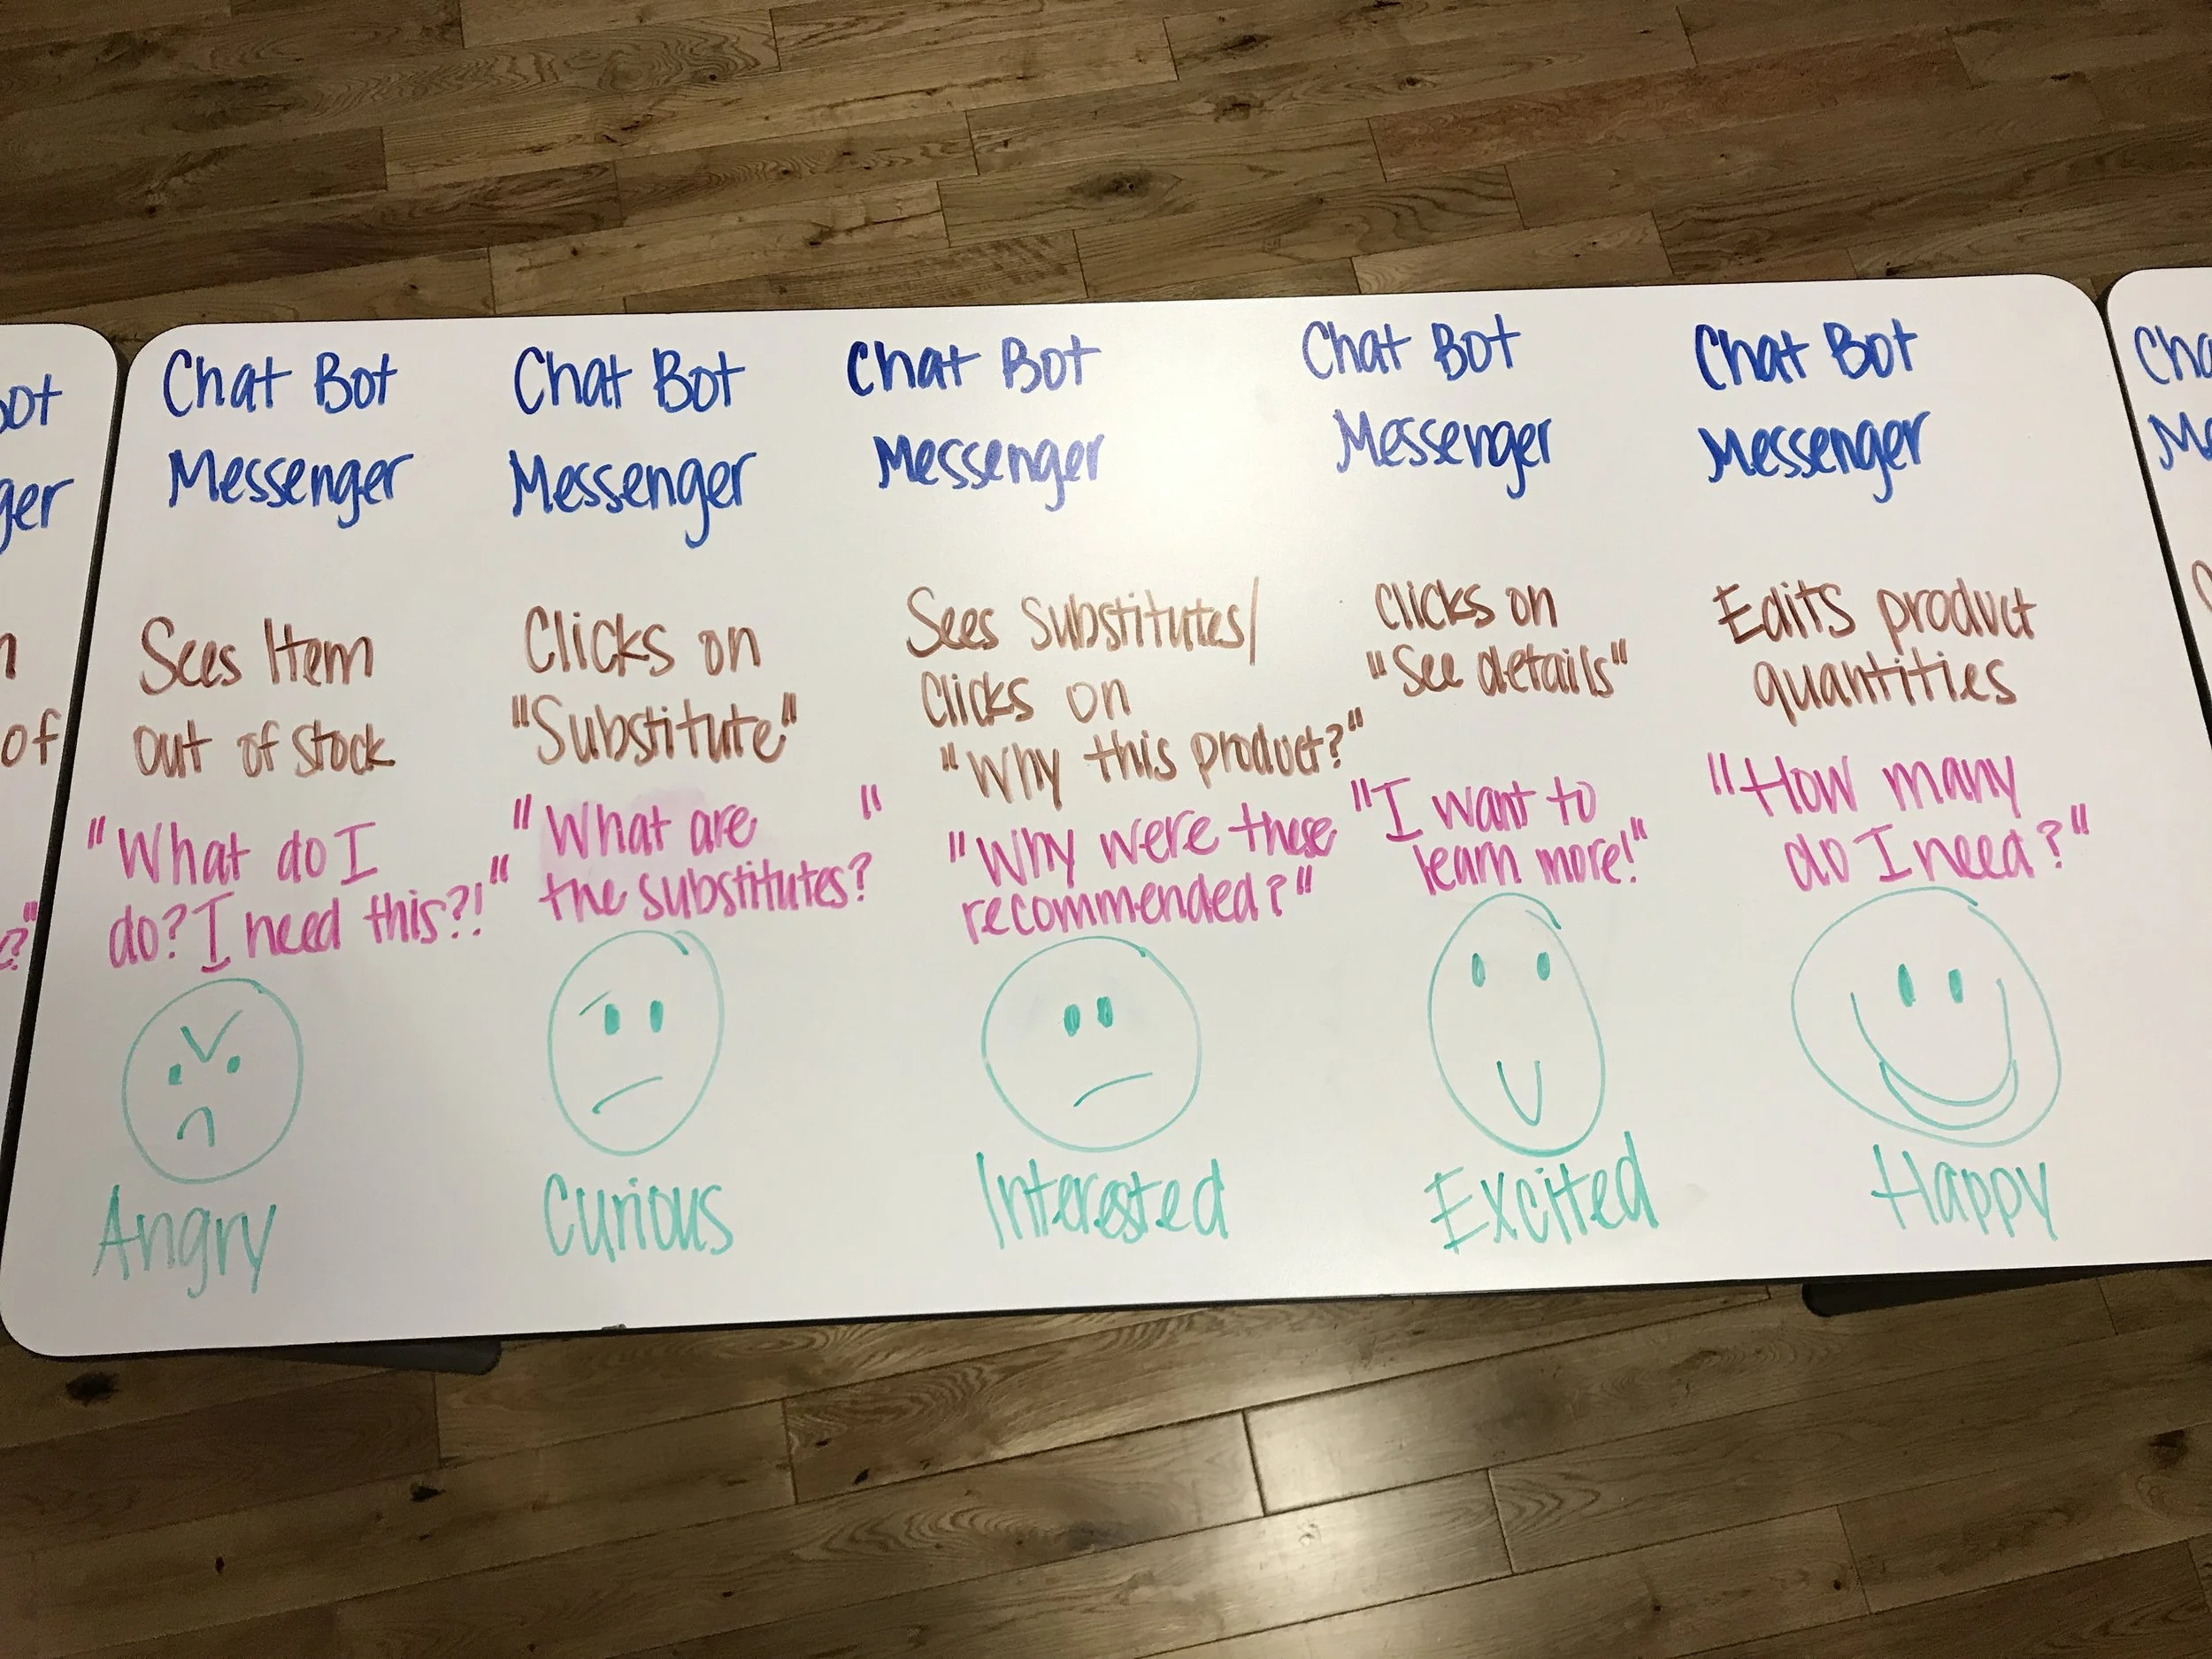 Chat Bot
Messenger
Sees Item
out of stock
"What do I
do? I need this?!"
Angry
Chat Bot
Messenger
Clicks on
"Substitute"
"What are "
the substitutes?
Curious
Chat Bot
Messenger
Sees Substitutes/
Clicks on
"Why this product?"
"Why were these
recommended?"
Interested
Chat Bot
Messenger
Clicks on
"See details"
"I want to
learn more!"
Excited
Chat Bot
Messenger
Edits product
quantities
"How many
do I need?"
Happy
of
?"